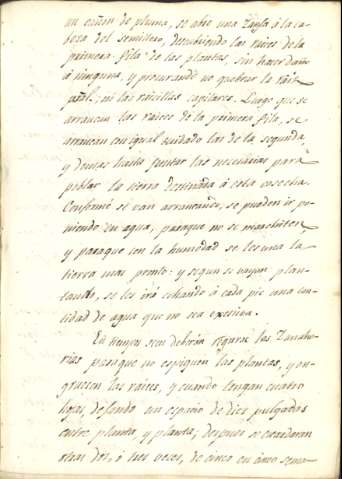 un cañon de pluma, se abre una Zanja á la ca-
beza del semillero, descubriendo las raices de la
primera fila de las plantas, sin hacer daño
á ninguna, y procurando no quebrar la raiz
pral; ni las raicillas capilares. Luego que se
arrancan las raices de la primera fila, se
arrancan con igual cuidado las de la segunda,
y demas hasta juntar las necesarias para
poblar la tierra destinada á esta cosecha.
Conforme se van arrancando, se pueden ir po-
niendo en agua, paraque no se marchiten,
y paraque con la humedad se les una la
tierra mas pronto: y segun se vayan plan-
tando, se les irá echando á cada pie una can-
tidad de agua que no sea excesiva.
En tiempo seco deberán regarse las Zanaho-
rias paraque no espiguen las plantas, y en-
gruesen las raices, y cuando tengan cuatro
hojas, dejando un espacio de diez pulgadas
entre planta, y planta; despues se escardaran
otras dos, ó tres veces, de cinco en cinco sema-